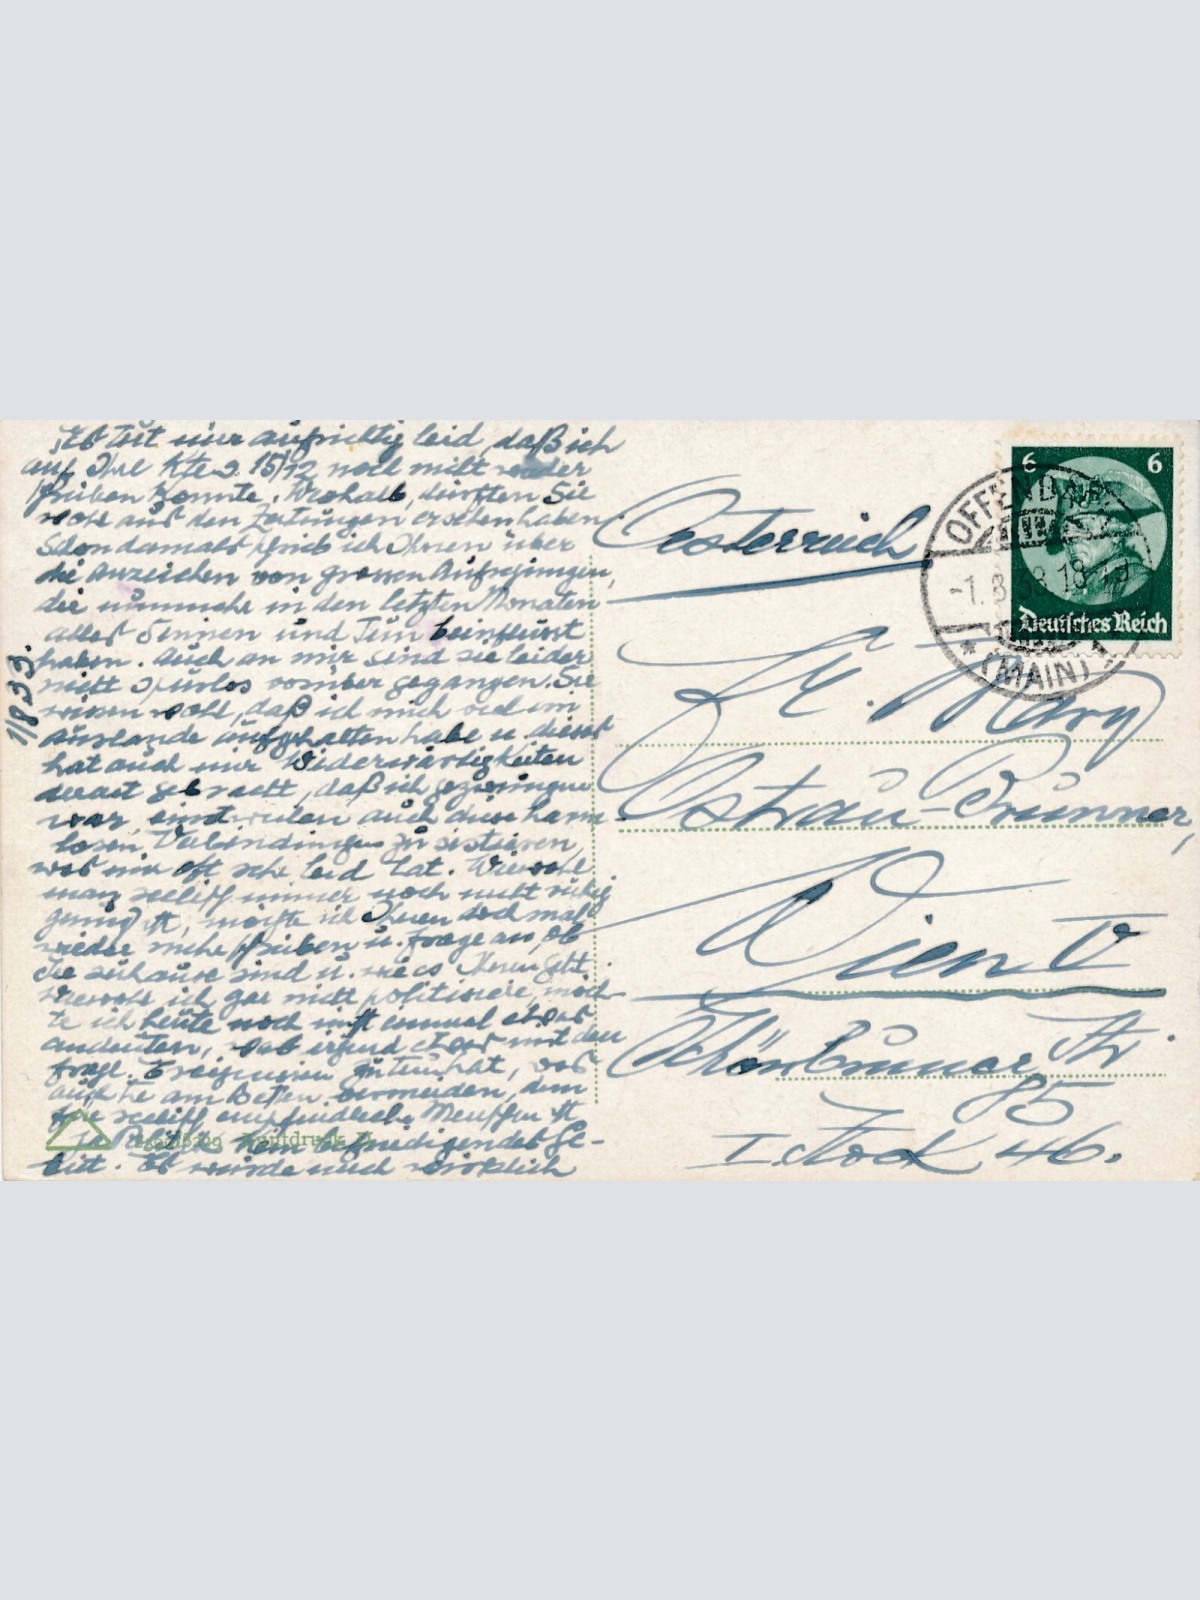 Es tut mir aufrichtig leid, daß ich
auf Ihre Kte v. 15/12 noch nicht wieder
schreiben konnte. Weshalb, dürften Sie
wohl aus den Zeitungen ersehen haben.
Schon damals schrieb ich Ihnen über
die Anzeichen von grossen Aufregungen,
die nunmehr in den letzten Monaten
alles Sinnen und Tun beinflusst
haben. Auch an mir sind sie leider
nicht spurlos vorüber gegangen. Sie
wissen wohl, daß ich mich viel im
Auslande aufgehalten habe u dieses
hat auch mir Widerwärtigkeiten
derart gebracht, daß ich gezwungen
war, einstweilen auch diese harm-
losen Verbindungen zu sistieren,
was mir oft sehr leid tat. Wiewohl
man seelisch immer noch nicht ruhig
genug ist, möchte ich Ihnen doch mal
wieder mehr schreiben u. frage an, ob
Sie zuhause sind u. wie es Ihnen geht.
Wiewohl ich gar nicht politisiere, möch-
te ich heute noch nicht einmal etwas
andeuten, was irgend etwas mit den
frage. Ereignissen zu tun hat, was
auch Sie am Besten vermeiden, denn
für seelisch empfindliche Menschen ist
ja Politik kein befriedigendes Ge-
biet. Es würde mich wirklich
1/8 33.
Oesterreich
Fr. Mary
Ostrau-Brunner,
Wien V
Schönbrunner Str.
85
I. Stock 46.
6 6
Deutsches Reich
OFFENBACH
-1.8.33.18-19
* (MAIN) 1